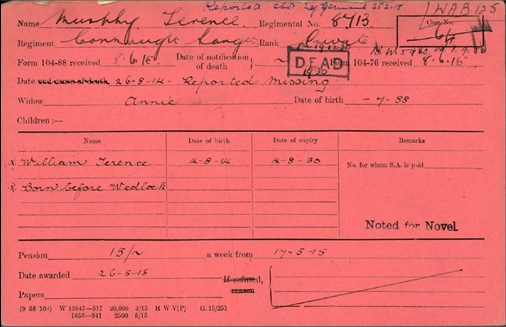 Reported
1 WAB 125
Name Murphy Terence Regimental No. 8713
Cas. No.
Regiment Connaught Rangers Rank Private
Form 104-88 received 8.6.15 Date of notification of death) DEAD Form 104-76 received 8.6.15
Date 26-8-14 Reported Missing
Widow Annie Date of birth -7-88
Children:—
Name Date of birth Date of expiry Remarks
x William Terence 14-8-14 14-8-30 No. for whom S.A. is paid
x Born before Wedlock
Noted for Novel
Pension 15/- a week from 17-5-15
Date awarded 26-5-15 If refused,
Papers
(9 38 10) W 13947—517 20,000 3/15 H W V(P) G. 15/251
1653—541 2500 5/15